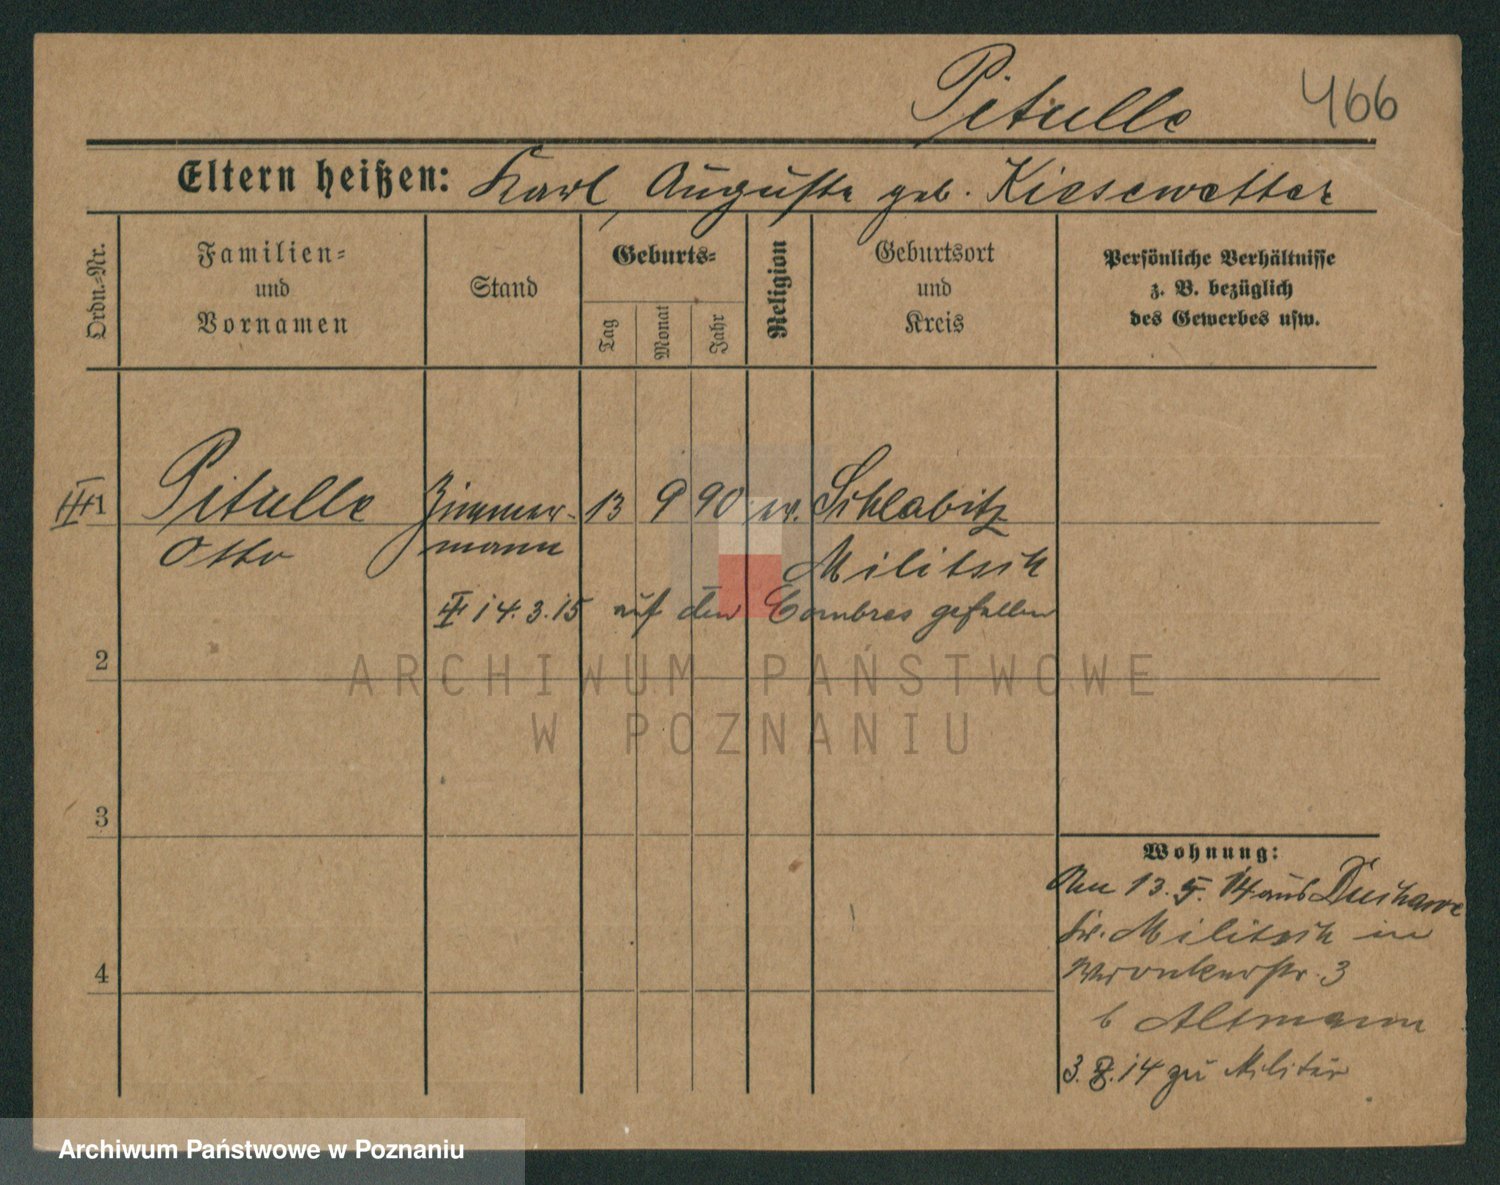 Pitulle 466
Eltern heißen: Karl, Auguste geb. Kiesewetter
Ordn.-Nr.
Familien-
und
Vornamen
Stand
Geburts-
Tag
Monat
Jahr
Religion
Geburtsort
und
Kreis
Persönliche Verhältnisse
z. B. bezüglich
des Gewerbes usw.
1 Pitulle Zimmer- 13 9 90 ev. Schlabitz
Otto mann Militsch
14.3.15 auf den Combres gefallen
2
3
4
Wohnung:
Am 13.5.14 aus
Kr. Militsch in
Wronkerstr. 3
b Altmann
3.8.14 zu Militär
ARCHIWUM PAŃSTWOWE
W POZNANIU
Archiwum Państwowe w Poznaniu